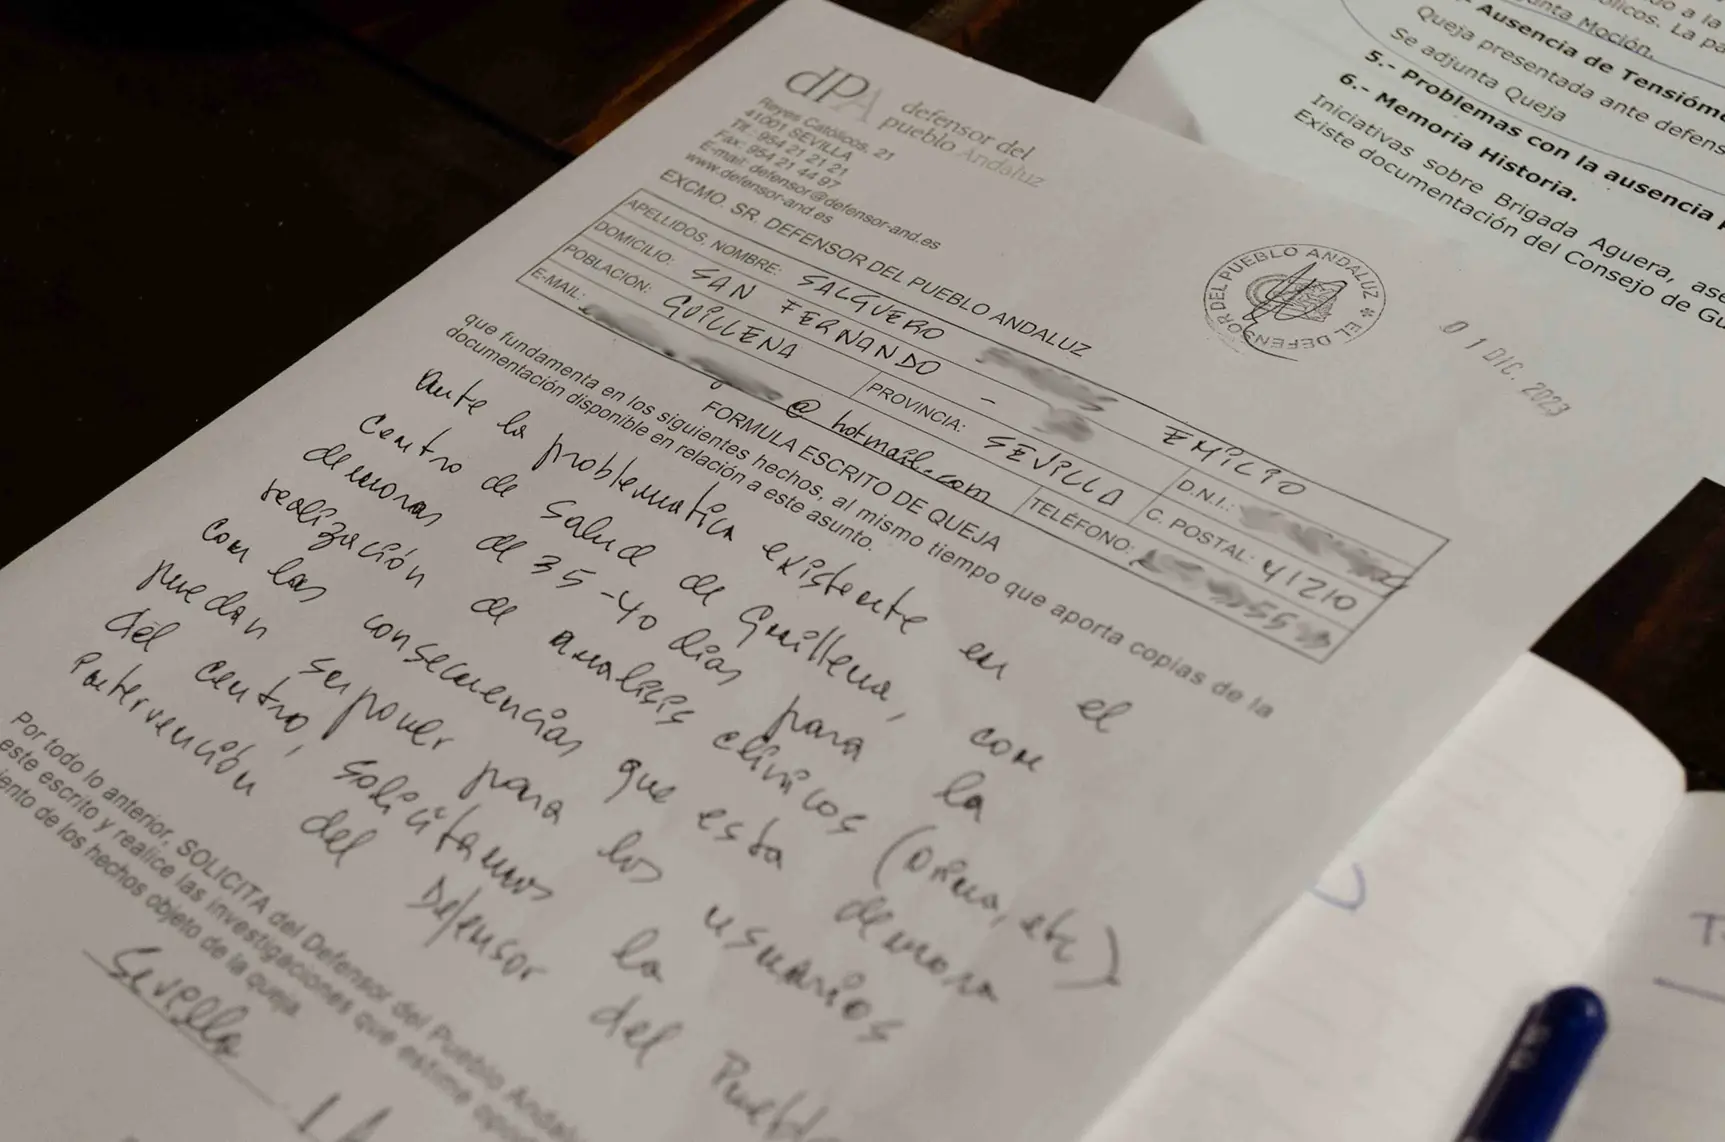 dPA defensor del
pueblo Andaluz
Reyes Católicos, 21
41001 SEVILLA
Tlf.: 954 21 21 21
Fax: 954 21 44 97
E-mail: defensor@defensor-and.es
www.defensor-and.es
EXCMO. SR. DEFENSOR DEL PUEBLO ANDALUZ
APELLIDOS, NOMBRE: SALGUERO EMILIO
DOMICILIO: SAN FERNANDO - D.N.I.:
POBLACIÓN: GUILLENA PROVINCIA: SEVILLA C. POSTAL: 41210
E-MAIL: @hotmail.com TELÉFONO:
FORMULA ESCRITO DE QUEJA
que fundamenta en los siguientes hechos, al mismo tiempo que aporta copias de la
documentación disponible en relación a este asunto.
Ante la problematica existente en el
Centro de Salud de Guillena, con
demoras de 35-40 dias para la
realización de analisis clinicos (orina, etc)
con las consecuencias que esta demora
puedan suponer para los usuarios
del centro, solicitamos la
intervención del Defensor del Pueblo
Por todo lo anterior, SOLICITA del Defensor del Pueblo Andal
este escrito y realice las investigaciones que estime opo
iento de los hechos objeto de la queja.
Sevilla
EL DEFENSOR DEL PUEBLO ANDALUZ
01 DIC. 2023
unta Moción.
- Ausencia de Tensióm
Queja presentada ante defens
Se adjunta Queja
5.- Problemas con la ausencia
6.- Memoria Historia.
Iniciativas sobre Brigada Aguera, ase
Existe documentación del Consejo de Gu